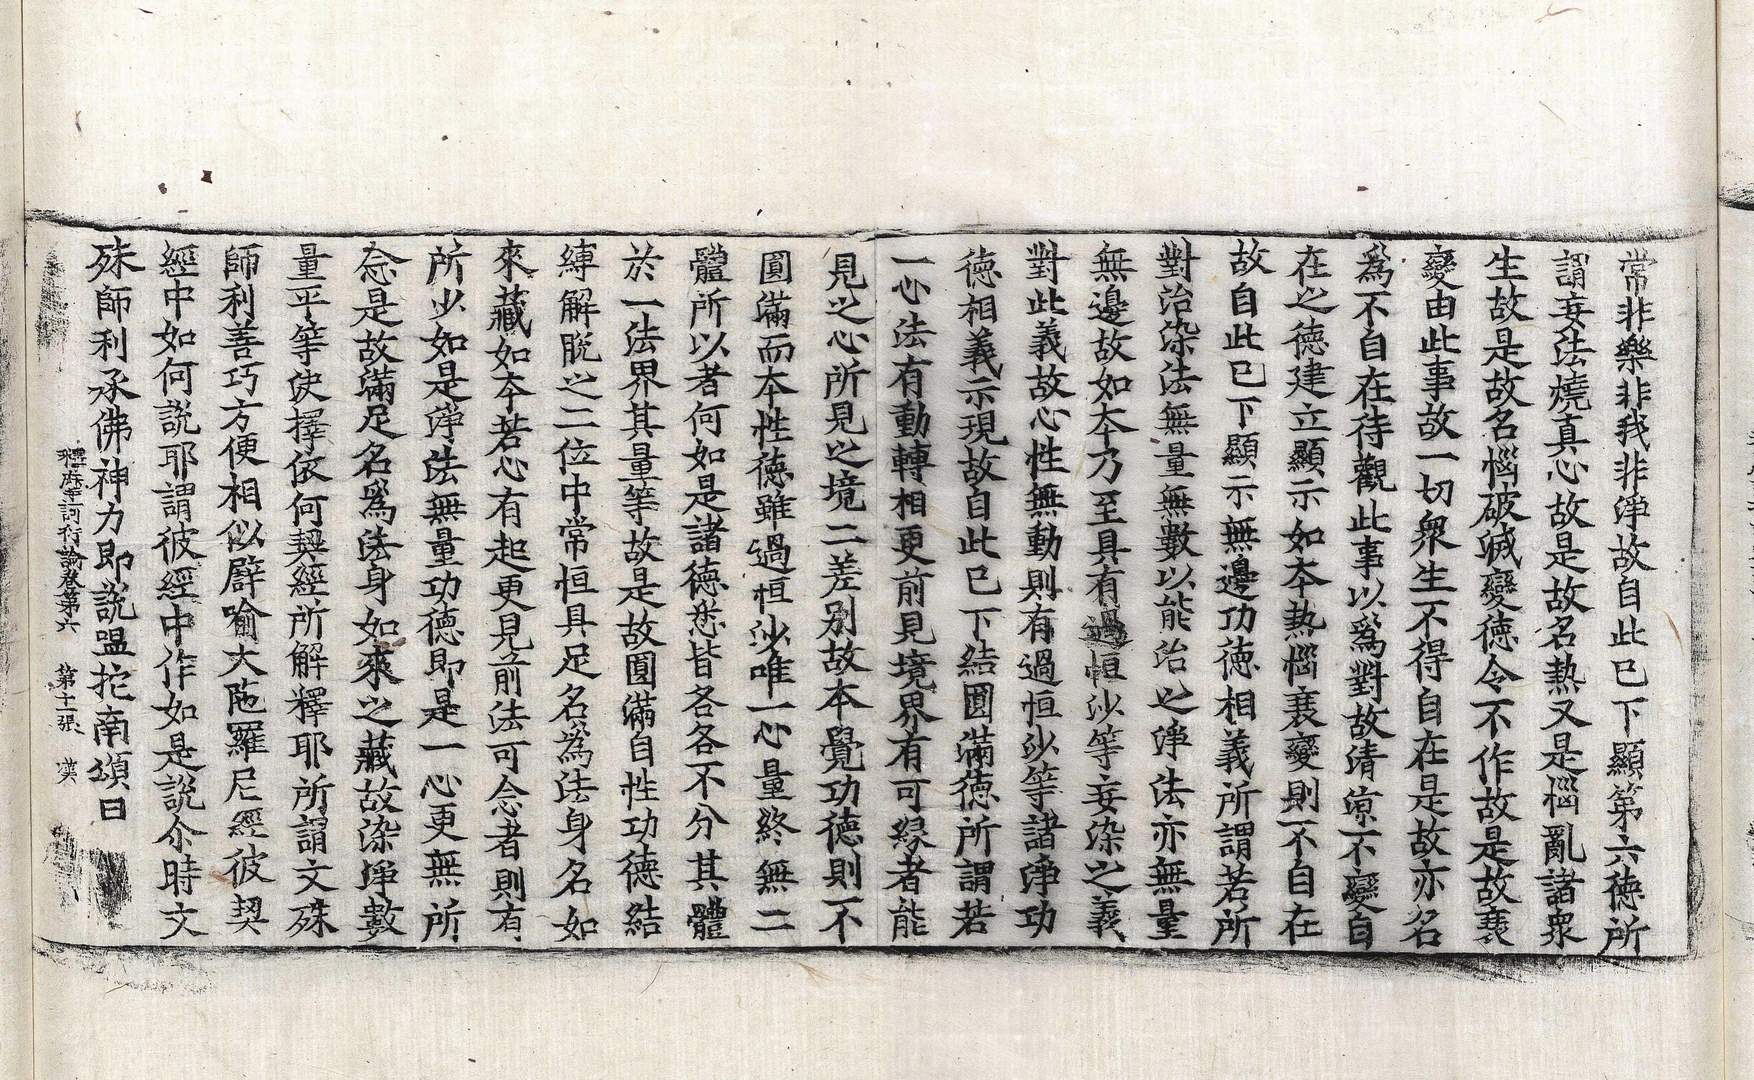 常非樂非我非淨故自此已下顯第六德所
謂妄法燒真心故是故名熱又是惱亂諸衆
生故是故名惱破滅變德令不作故是故衰
變由此事故一切衆生不得自在是故亦名
爲不自在待觀此事以爲對故清凉不變自
在之德建立顯示如夲熱惱衰變則不自在
故自此已下顯示無邊功德相義所謂若所
對治染法無量無數以能治之淨法亦無量
無邊故如夲乃至具有過恒沙等妄染之義
對此義故心性無動則有過恒沙等諸淨功
德相義示現故自此已下結圓滿德所謂若
一心法有動轉相更前見境界有可緣者能
見之心所見之境二差別故本覺功德則不
圓滿而夲性德雖過恒沙唯一心量終無二
體所以者何如是諸德悉皆各各不分其體
於一法界其量等故是故圓滿自性功德結
縛解脫之二位中常恒具足名爲法身名如
來藏如夲若心有起更見前法可念者則有
所少如是淨法無量功德即是一心更無所
念是故滿足名爲法身如來之藏故染淨數
量平等決擇依何契經所解釋耶所謂文殊
師利善巧方便相似譬喻大陁羅尼經彼契
經中如何說耶謂彼經中作如是說尒時文
殊師利承佛神力即說盟拕南頌曰
釋摩訶衍論卷第六 第十一張 漢